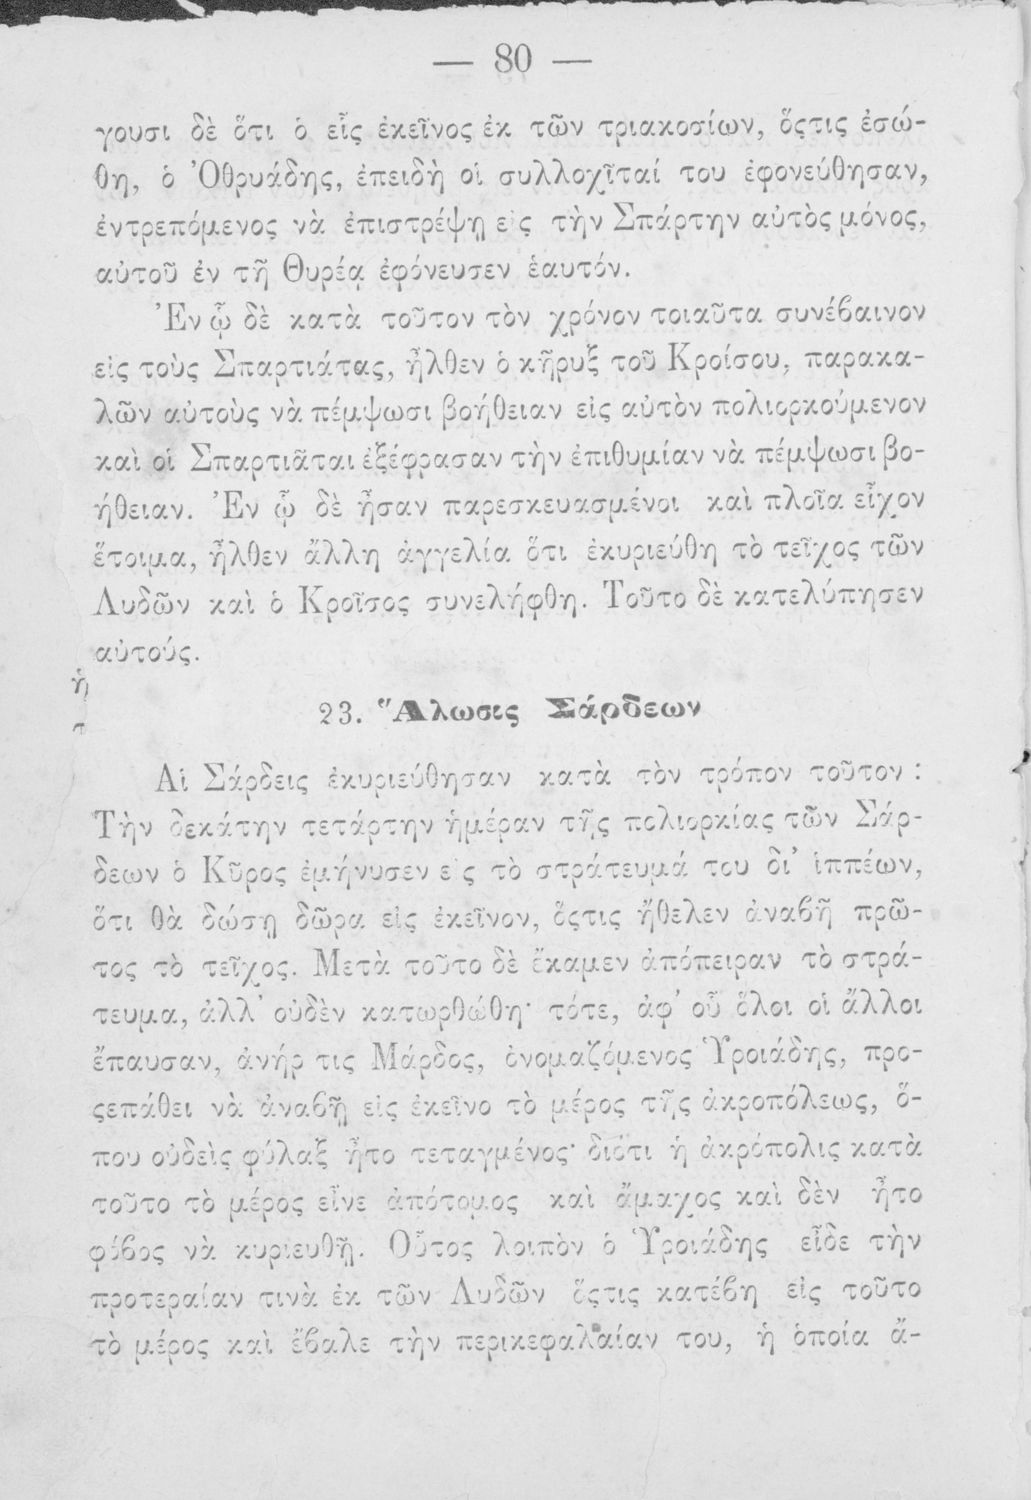 — 80 —
γουσι δὲ ὅτι ὁ εἷς ἐκεῖνος ἐκ τῶν τριακοσίων, ὅςτις ἐσώ-
θη, ὁ Ὀθρυάδης, ἐπειδὴ οἱ συλλοχῖταί του ἐφονεύθησαν,
ἐντρεπόμενος νὰ ἐπιστρέψῃ εἰς τὴν Σπάρτην αὐτὸς μόνος,
αὐτοῦ ἐν τῇ Θυρέᾳ ἐφόνευσεν ἑαυτόν.
Ἐν ᾧ δὲ κατὰ τοῦτον τὸν χρόνον τοιαῦτα συνέβαινον
εἰς τοὺς Σπαρτιάτας, ἦλθεν ὁ κῆρυξ τοῦ Κροίσου, παρακα-
λῶν αὐτοὺς νὰ πέμψωσι βοήθειαν εἰς αὐτὸν πολιορκούμενον
καὶ οἱ Σπαρτιᾶται ἐξέφρασαν τὴν ἐπιθυμίαν νὰ πέμψωσι βο-
ήθειαν. Ἐν ᾧ δὲ ἦσαν παρεσκευασμένοι καὶ πλοῖα εἶχον
ἕτοιμα, ἦλθεν ἄλλη ἀγγελία ὅτι ἐκυριεύθη τὸ τεῖχος τῶν
Λυδῶν καὶ ὁ Κροῖσος συνελήφθη. Τοῦτο δὲ κατελύπησεν
αὐτούς.
ἡ
23. Ἅλωσις Σάρδεων
Αἱ Σάρδεις ἐκυριεύθησαν κατὰ τὸν τρόπον τοῦτον :
Τὴν δεκάτην τετάρτην ἡμέραν τῆς πολιορκίας τῶν Σάρ-
δεων ὁ Κῦρος ἐμήνυσεν εἰς τὸ στράτευμά του δι᾿ ἱππέων,
ὅτι θὰ δώσῃ δῶρα εἰς ἐκεῖνον, ὅςτις ἤθελεν ἀναβῆ πρῶ-
τος τὸ τεῖχος. Μετὰ τοῦτο δὲ ἔκαμεν ἀπόπειραν τὸ στρά-
τευμα, ἀλλ᾿ οὐδὲν κατωρθώθη· τότε, ἀφ᾿ οὗ ὅλοι οἱ ἄλλοι
ἔπαυσαν, ἀνήρ τις Μάρδος, ὀνομαζόμενος Ὑροιάδης, προ-
ςεπάθει νὰ ἀναβῇ εἰς ἐκεῖνο τὸ μέρος τῆς ἀκροπόλεως, ὅ-
που οὐδεὶς φύλαξ ἦτο τεταγμένος· διότι ἡ ἀκρόπολις κατὰ
τοῦτο τὸ μέρος εἶνε ἀπότομος καὶ ἄμαχος καὶ δὲν ἦτο
φόβος νὰ κυριευθῇ. Οὗτος λοιπὸν ὁ Ὑροιάδης εἶδε τὴν
προτεραίαν τινὰ ἐκ τῶν Λυδῶν ὅςτις κατέβη εἰς τοῦτο
τὸ μέρος καὶ ἔβαλε τὴν περικεφαλαίαν του, ἡ ὁποία ἄ-